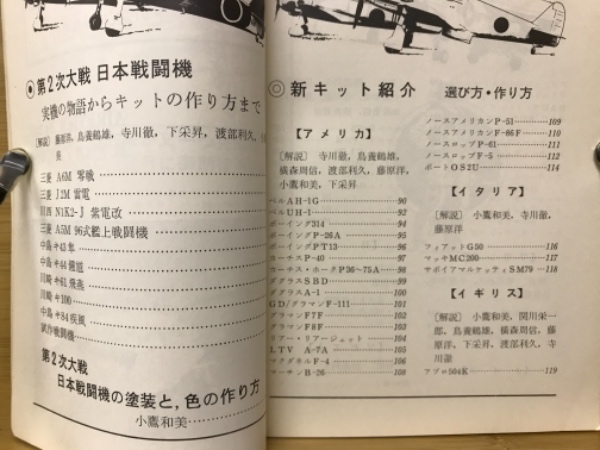 ◉第2次大戦 日本戦闘機
実機の物語からキットの作り方まで
〔解説〕藤原洋，鳥養鶴雄，寺川徹，下采昇，渡部利久，
美
三菱 A6M 零戦
三菱 J2M 雷電
川西 N1K2-J 紫電改
三菱 A5M 96式艦上戦闘機
中島 キ43 隼
中島 キ44 鍾馗
川崎 キ61 飛燕
川崎 キ100
中島 キ84 疾風
試作戦闘機
第2次大戦
日本戦闘機の塗装と，色の作り方
小鷹和美
◎新キット紹介 選び方・作り方
【アメリカ】
〔解説〕寺川徹，鳥養鶴雄，
横森周信，渡部利久，藤原洋，
小鷹和美，下采昇
ベルAH-1G 90
ベルUH-1 92
ボーイング314 94
ボーイングP-26A 95
ボーイングPT13 96
カーチスP-40 97
カーチス・ホークP36〜75A 98
ダグラスSBD 99
ダグラスA-1 100
GD/グラマンF-111 101
グラマンF7F 102
グラマンF8F 103
リアー・リアージェット 104
LTV A-7A 105
マクダネルF-4 106
マーチンB-26 108
ノースアメリカンP-51 109
ノースアメリカンF-86F 110
ノースロップP-61 111
ノースロップF-5 112
ボートOS2U 114
【イタリア】
〔解説〕小鷹和美，寺川徹，
藤原洋
フィアットG50 116
マッキMC200 117
サボイアマルケッティSM79 118
【イギリス】
〔解説〕小鷹和美，関川栄一
郎，鳥養鶴雄，横森周信，藤
原洋，下采昇，渡部利久，寺
川徹
アブロ504K 119